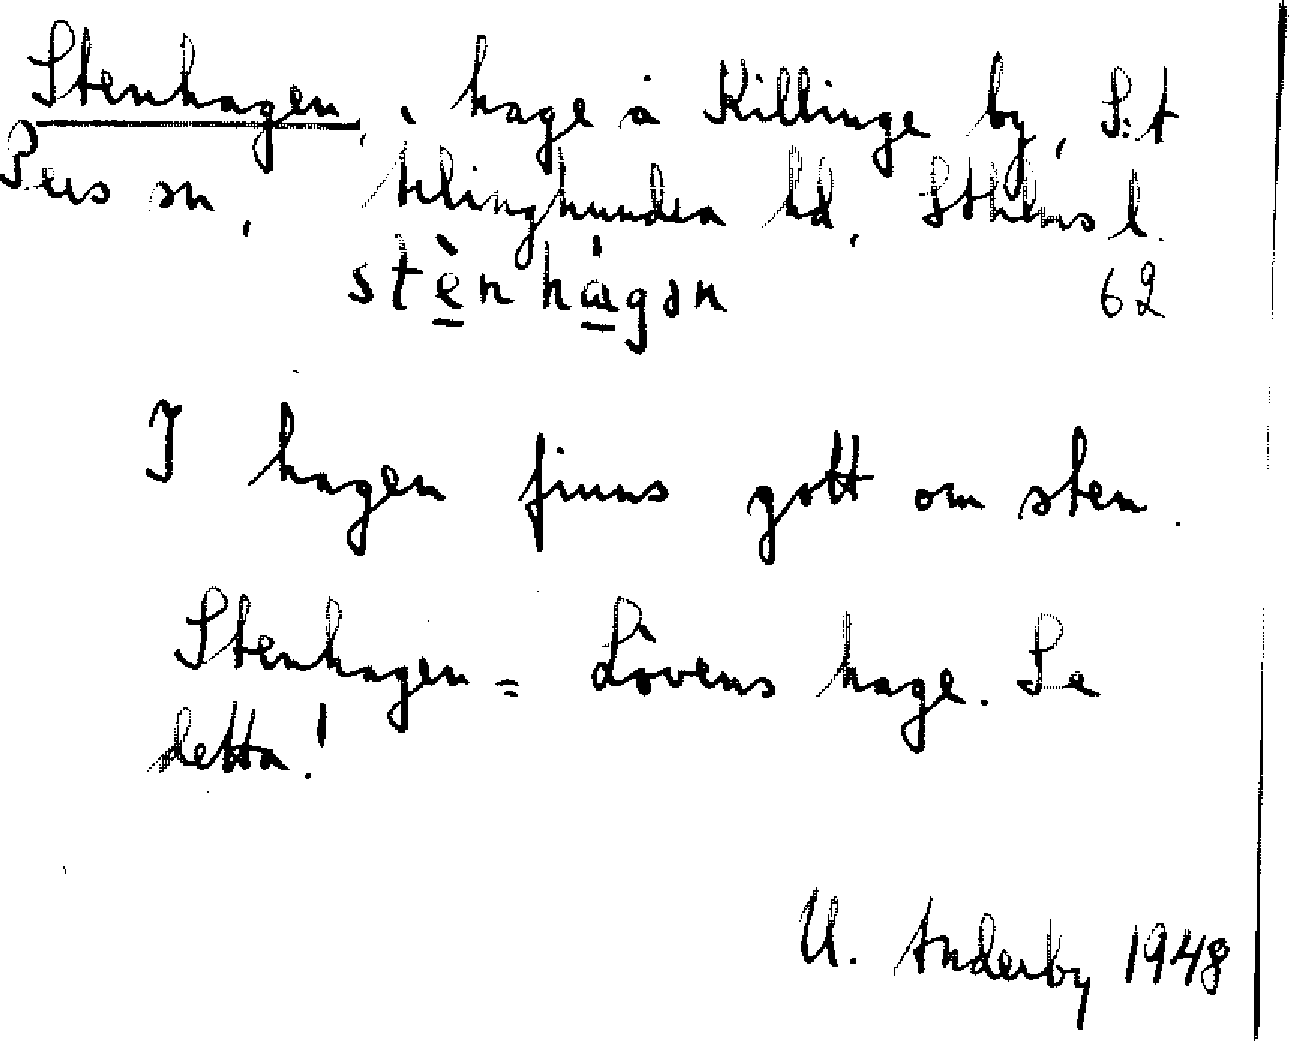 Stenhagen, hage å Killinge by, S:t
Pers sn, Ærlinghundra hd, Sthlms l.
stènhàgən 62
I hagen finns gott om sten.
Stenhagen = Lövens hage. Se
detta!
U. Anderby 1948